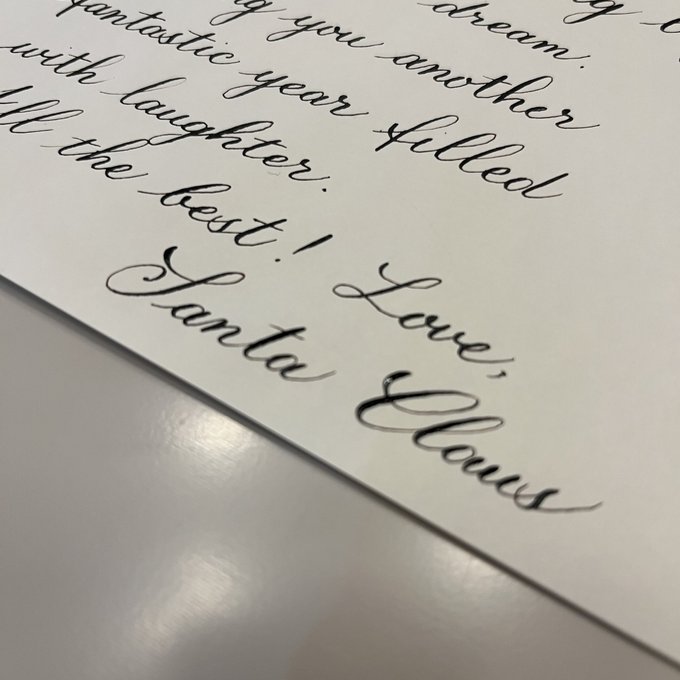 dream.
you another
fantastic year filled
with laughter.
All the best!
Love,
Santa Claus